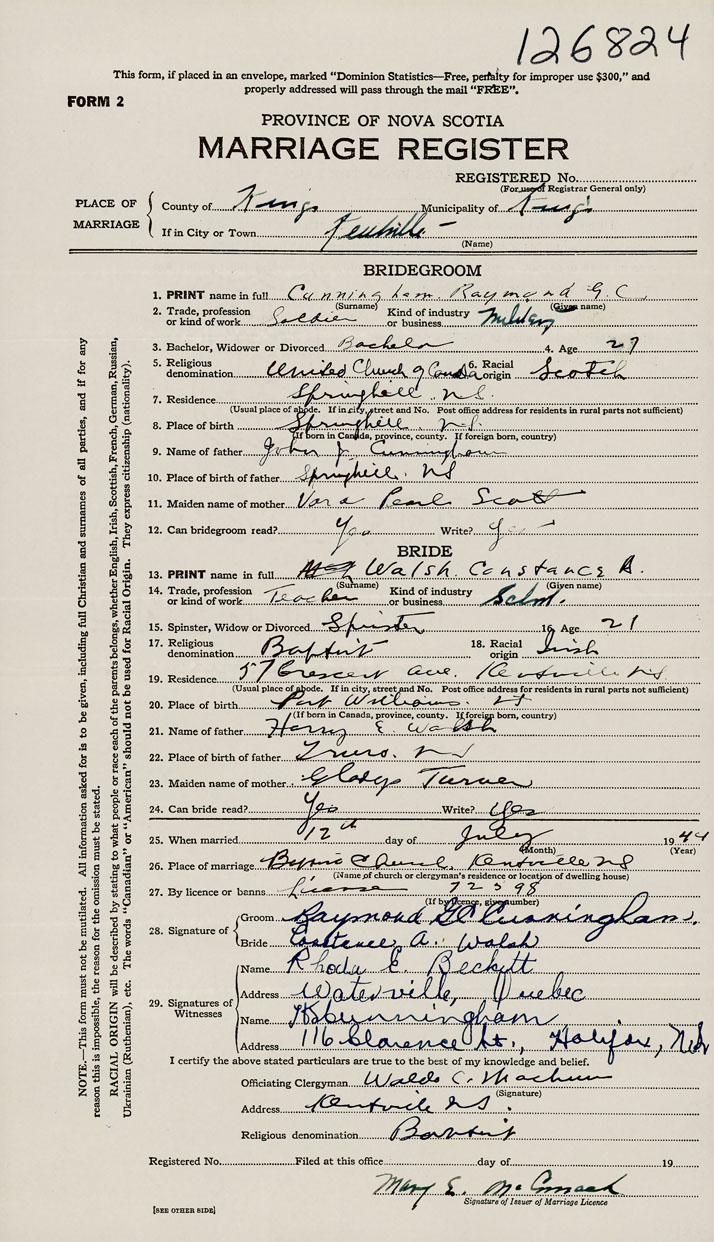 126824
This form, if placed in an envelope, marked "Dominion Statistics—Free, penalty for improper use $300," and
properly addressed will pass through the mail "FREE".
FORM 2
PROVINCE OF NOVA SCOTIA
MARRIAGE REGISTER
REGISTERED No.
(For use of Registrar General only)
PLACE OF MARRIAGE
County of Kings Municipality of Kings
If in City or Town Kentville
(Name)
BRIDEGROOM
1. PRINT name in full Cunningham Raymond G. C.
(Surname) (Given name)
2. Trade, profession or kind of work Soldier Kind of industry or business Military
3. Bachelor, Widower or Divorced Bachelor 4. Age 27
5. Religious denomination United Church of Canada 6. Racial origin Scotch
7. Residence Springhill N.S.
(Usual place of abode. If in city, street and No. Post office address for residents in rural parts not sufficient)
8. Place of birth Springhill N.S.
(If born in Canada, province, county. If foreign born, country)
9. Name of father John J. Cunningham
10. Place of birth of father Springhill NS
11. Maiden name of mother Pearl Scott
12. Can bridegroom read? Yes Write? Yes
BRIDE
13. PRINT name in full Walsh. Constance A.
(Surname) (Given name)
14. Trade, profession or kind of work Teacher Kind of industry or business
15. Spinster, Widow or Divorced Spinster 16. Age 21
17. Religious denomination Baptist 18. Racial origin Irish
19. Residence 57 Crescent Ave. Kentville NS.
(Usual place of abode. If in city, street and No. Post office address for residents in rural parts not sufficient)
20. Place of birth Port Williams. NS
(If born in Canada, province, county. If foreign born, country)
21. Name of father Harry E. Walsh
22. Place of birth of father Truro. NS
23. Maiden name of mother Gladys Turner
24. Can bride read? Yes Write? Yes
25. When married 12th day of July 1944
(Month) (Year)
26. Place of marriage Church, Kentville NS
(Name of church or clergyman's residence or location of dwelling house)
27. By licence or banns License 72398
(If by licence, give number)
28. Signature of
Groom Raymond G C Cunningham.
Bride Constance A. Walsh
29. Signatures of Witnesses
Name Rhoda E. Beckett
Address Waterville, Quebec
Name Cunningham
Address 116 Clarence St., Halifax, N.S.
I certify the above stated particulars are true to the best of my knowledge and belief.
Officiating Clergyman Waldo C. Machum
(Signature)
Address Kentville NS.
Religious denomination Baptist
Registered No. Filed at this office day of 19
Mary E. McCormack
Signature of Issuer of Marriage Licence
[SEE OTHER SIDE]
NOTE.—This form must not be mutilated. All information asked for is to be given, including full Christian and surnames of all parties, and if for any
reason this is impossible, the reason for the omission must be stated.
RACIAL ORIGIN will be described by stating to what people or race each of the parents belongs, whether English, Irish, Scottish, French, German, Russian,
Ukrainian (Ruthenian), etc. The words "Canadian" or "American" should not be used for Racial Origin. They express citizenship (nationality).